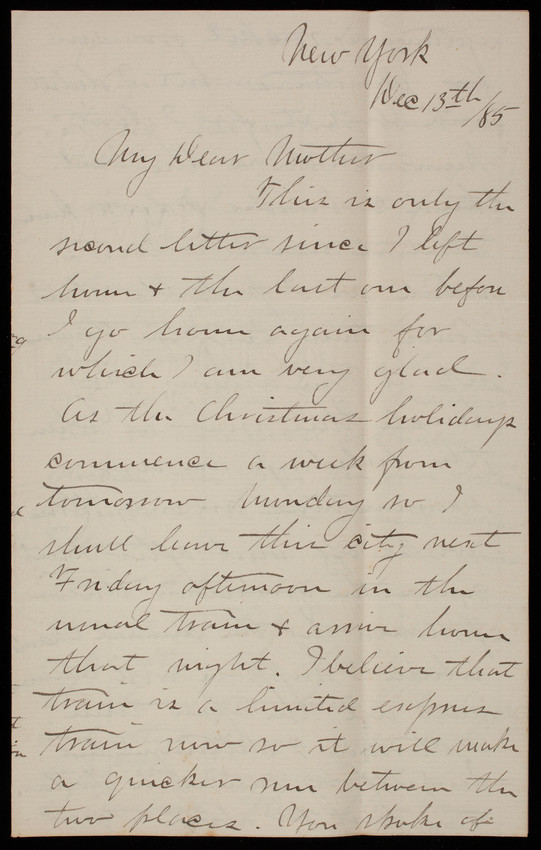 New York
Dec 13th/85
My Dear Mother
This is only the
second letter since I left
home & the last one before
I go home again for
which I am very glad.
As the Christmas holidays
commence a week from
tomorrow Monday so I
shall leave this city next
Friday afternoon in the
usual train & arrive home
that night. I believe that
train is a limited express
train now so it will make
a quicker run between the
two places. You spoke of